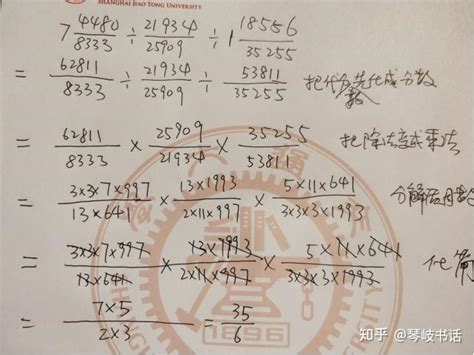 SHANGHAI JIAO TONG UNIVERSITY
7 4480/8333 ÷ 21934/25909 ÷ 1 18556/35255
= 62811/8333 ÷ 21934/25909 ÷ 53811/35255 把代分数化成分数
= 62811/8333 × 25909/21934 × 35255/53811 把除法变成乘法
= 3×3×7×997/13×641 × 13×1993/2×11×997 × 5×11×641/3×3×3×1993 分解质因数
= 3×3×7×997/13×641 × 13×1993/2×11×997 × 5×11×641/3×3×3×1993 化简
= 7×5/2×3 = 35/6
1896
知乎 @琴岐书话